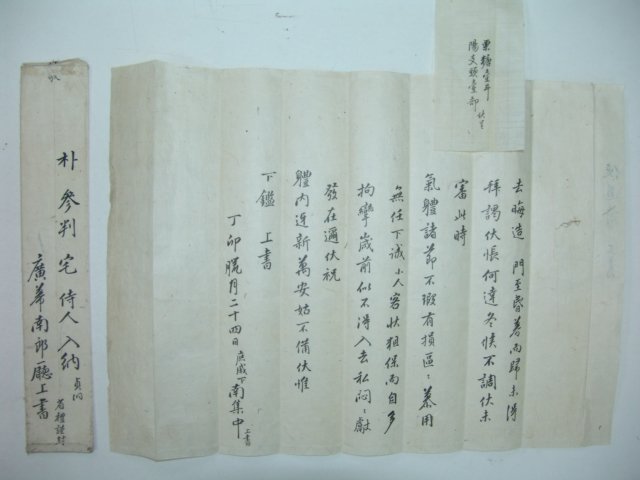 去晦造 門至昏暮而歸未得
拜謁伏悵何達冬候不調伏未
審此時
氣體諸節不瑕有損區〻慕用
無任下誠小人客狀狙保而自多
拘攣歲前似不得入去私悶〻獻
發在邇伏祝
體內迓新萬安姑不備伏惟
下鑑 上書
丁卯臘月二十四日 庶戚下 南集中 上書
栗糖壹斗
陽支頭壹部 伏呈
朴參判宅 侍人 入納
廣華南郎廳上書
省禮謹封